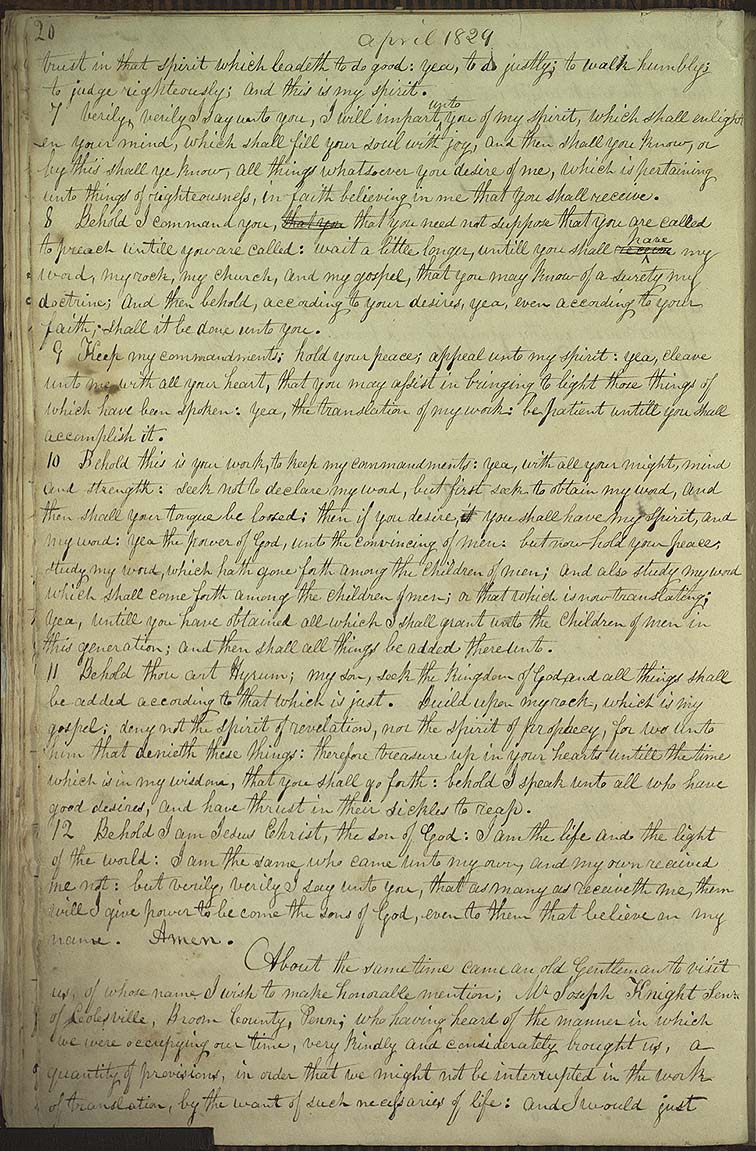 20
April 1829
trust in that spirit which leadeth to do good: yea, to do justly; to walk humbly;
to judge righteously; and this is my spirit.
7 Verily, verily I say unto you, I will impart unto you of my spirit, which shall enlight
en your mind, which shall fill your soul with joy, and then shall you know, or
by this shall ye know, all things whatsoever you desire of me, which is pertaining
unto things of righteousness, in faith believing in me that you shall receive.
8 Behold I command you, that you that you need not suppose that you are called
to preach untill you are called: wait a little longer, untill you shall receive have my
word, my rock, my church, and my gospel, that you may know of a surety my
doctrine; And then behold, according to your desires, yea, even according to your
faith, shall it be done unto you.
9 Keep my commandments; hold your peace; appeal unto my spirit: yea, cleave
unto me with all your heart, that you may assist in bringing to light those things of
which have been spoken: yea, the translation of my work: be patient untill you shall
accomplish it.
10 Behold this is your work, to keep my commandments: yea, with all your might, mind
and strength: seek not to declare my word, but first seek to obtain my word, and
then shall your tongue be loosed; then if you desire, it you shall have my spirit, and
my word: yea the power of God, unto the convincing of men: but now hold your peace;
study my word, which hath gone forth among the children of men; and also study my word
which shall come forth among the children of men; or that which is now translating;
yea, untill you have obtained all which I shall grant unto the children of men in
this generation; and then shall all things be added thereunto.
11 Behold thou art Hyrum; my son, seek the kingdom of God and all things shall
be added according to that which is just. Build upon my rock, which is my
gospel; deny not the spirit of revelation, nor the spirit of prophecy, for wo unto
him that denieth these things: therefore treasure up in your hearts untill the time
which is in my wisdom, that you shall go forth: behold I speak unto all who have
good desires, and have thrust in their sickles to reap.
12 Behold I am Jesus Christ, the son of God: I am the life and the light
of the world: I am the same who came unto my own, and my own received
me not: but verily, verily I say unto you, that as many as receiveth me, them
will I give power to be come the sons of God, even to them that believe on my
name. Amen.
About the same time came an old Gentleman to visit
us, of whose name I wish to make honorable mention; Mr Joseph Knight Senr
of Colesville, Broom County, Penn; who having heard of the manner in which
we were occupying our time, very kindly and considerately brought us, a
quantity of provisions, in order that we might not be interrupted in the work
of translation, by the want of such necessaries of life: and I would just